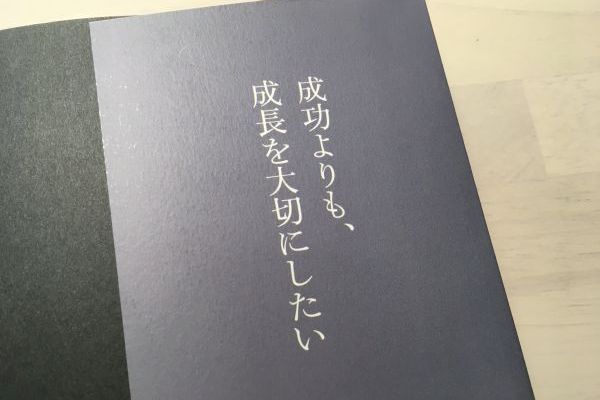 成功よりも、
成長を大切にしたい